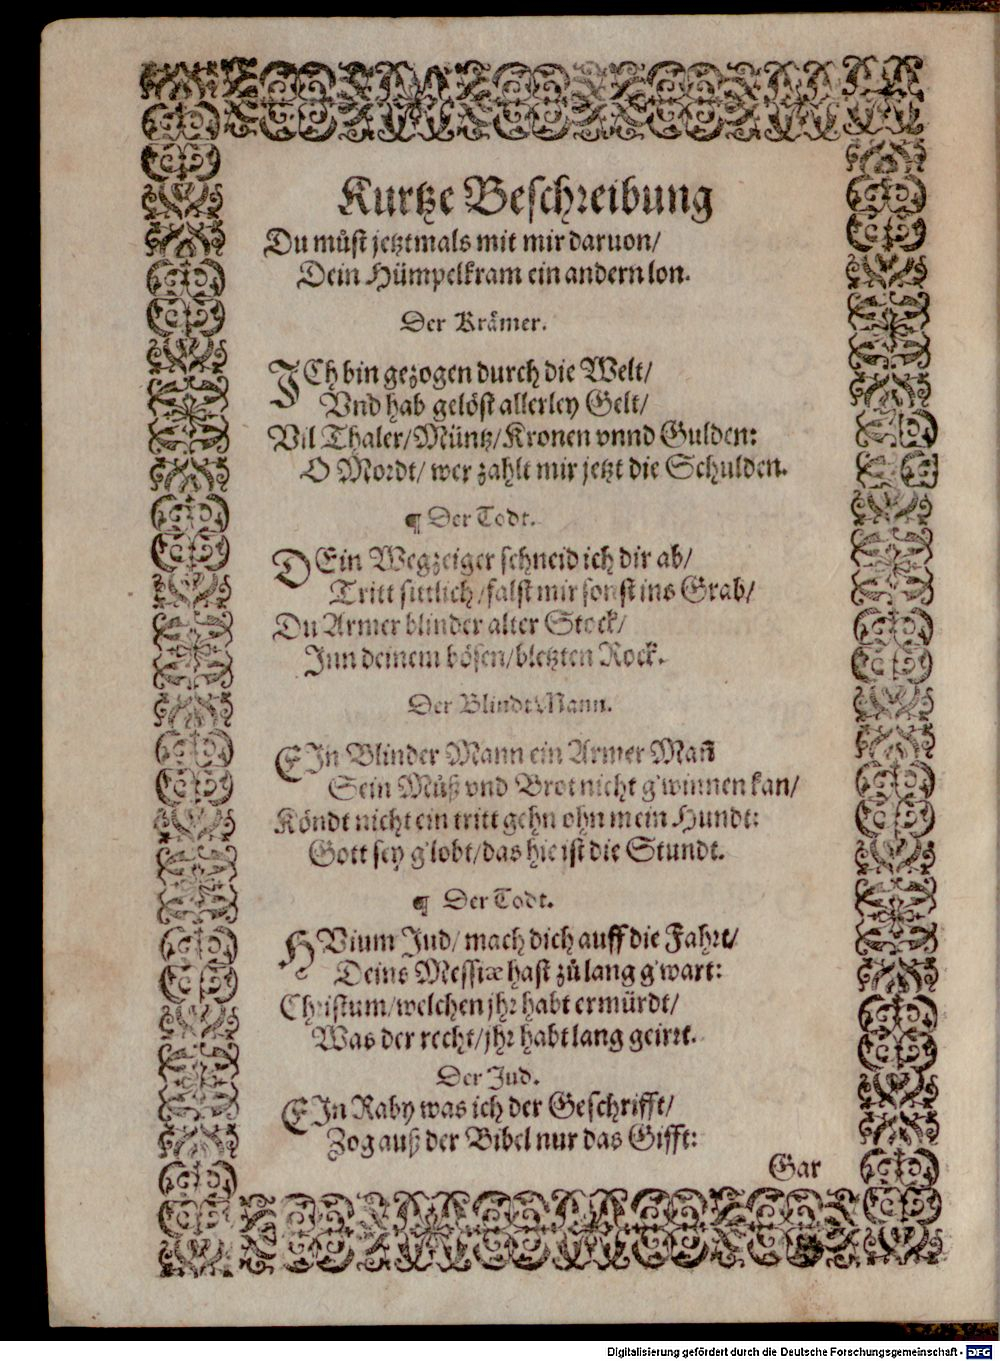 Kurtze Beschreibung
Du můst jetztmals mit mir daruon/
Dein Hümpelkram ein andern lon.
Der Krämer.
ICh bin gezogen durch die Welt/
Vnd hab gelöst allerley Gelt/
Vil Thaler/Müntz/Kronen vnnd Gulden:
O Mordt/ wer zahlt mir jetzt die Schulden.
¶ Der Todt.
DEin Wegzeiger schneid ich dir ab/
Tritt sittlich/falst mir sonst ins Grab/
Du Armer blinder alter Stock/
Inn deinem bösen/bletzten Rock.
Der Blindt Mann.
EIn Blinder Mann ein Armer Mañ
Sein Můß vnd Brot nicht g'winnen kan/
Köndt nicht ein tritt gehn ohn mein Hundt:
Gott sey g'lobt/das hie ist die Stundt.
¶ Der Todt.
HVium Jud/ mach dich auff die Fahrt/
Deins Messiæ hast zů lang g'wart:
Christum/welchen jhr habt ermürdt/
Was der recht/jhr habt lang geirrt.
Der Jud.
EIn Raby was ich der Geschrifft/
Zog auß der Bibel nur das Gifft:
Gar
Digitalisierung gefördert durch die Deutsche Forschungsgemeinschaft - DFG